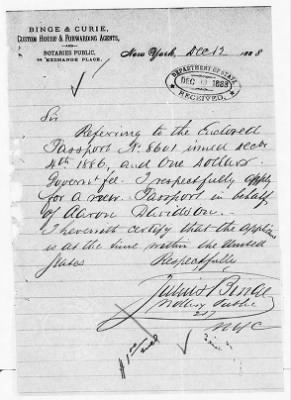 BINGE & CURIE,
CUSTOM HOUSE & FORWARDING AGENTS,
NOTARIES PUBLIC,
EXCHANGE PLACE.
New York, Dec 12 1888
DEPARTMENT OF STATE
DEC 13 1888
RECEIVED.
Sir
Referring to the Enclosed
Passport No. 8601 issued
4th 1886, and One Dollar
Governt fee. I respectfully apply
for a new Passport in behalf
of Aaron Davidson.
I herewith certify that the
is at the time within the United
States Respectfully
Julius Binge
Notary Public
NYC